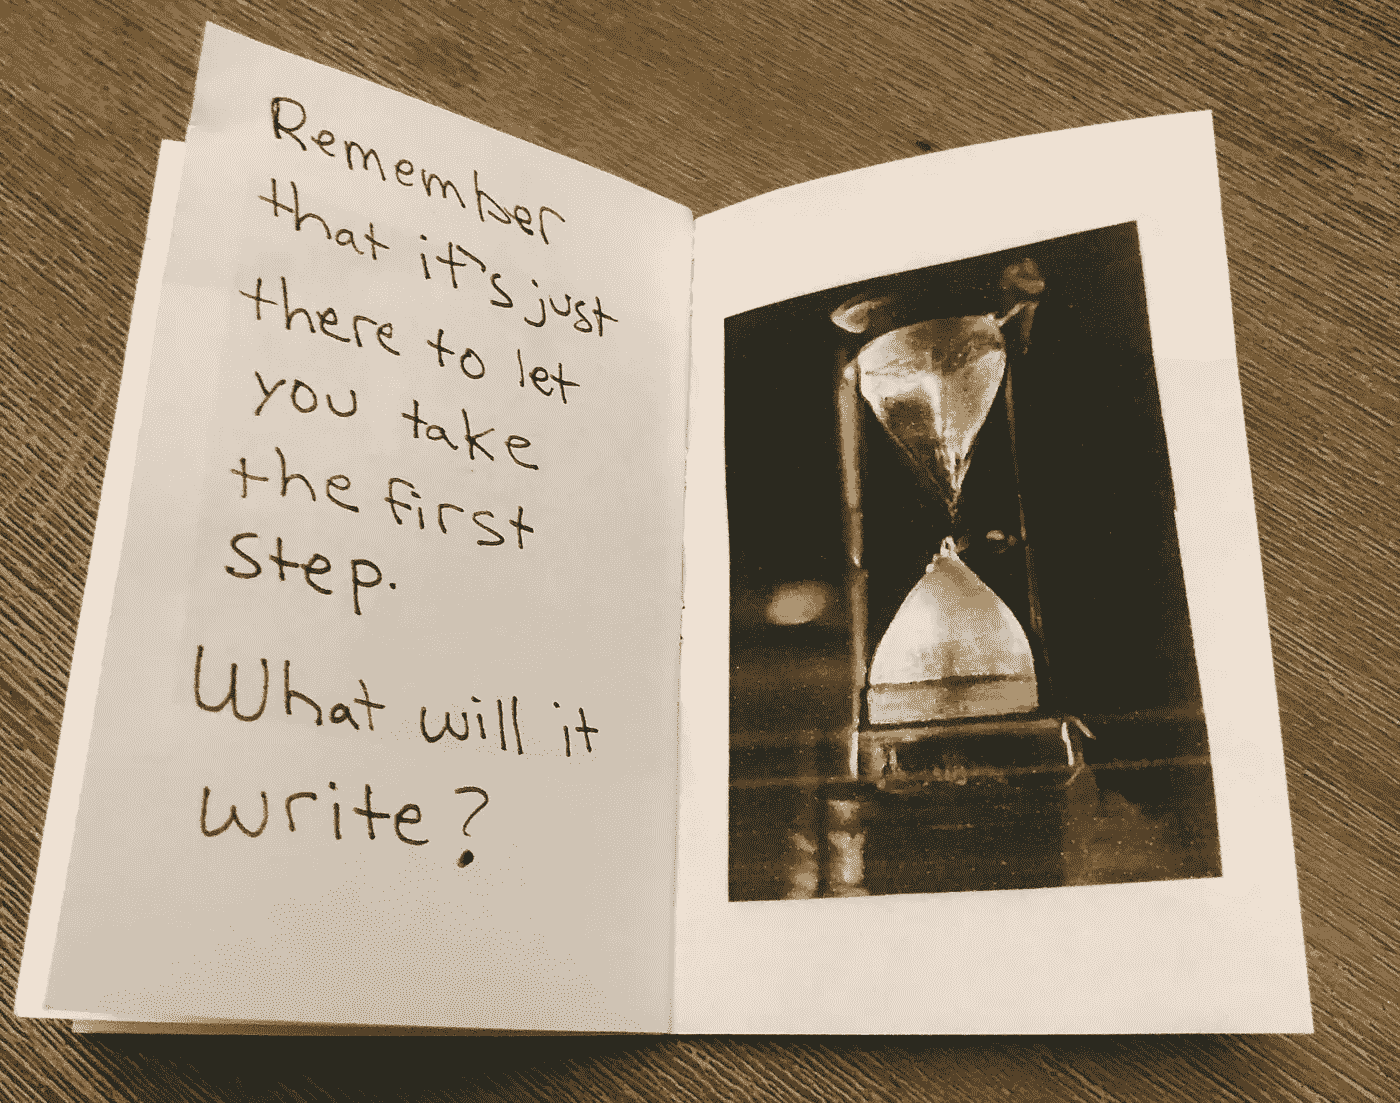 Remember
that it's just
there to let
you take
the first
step.
What will it
write?